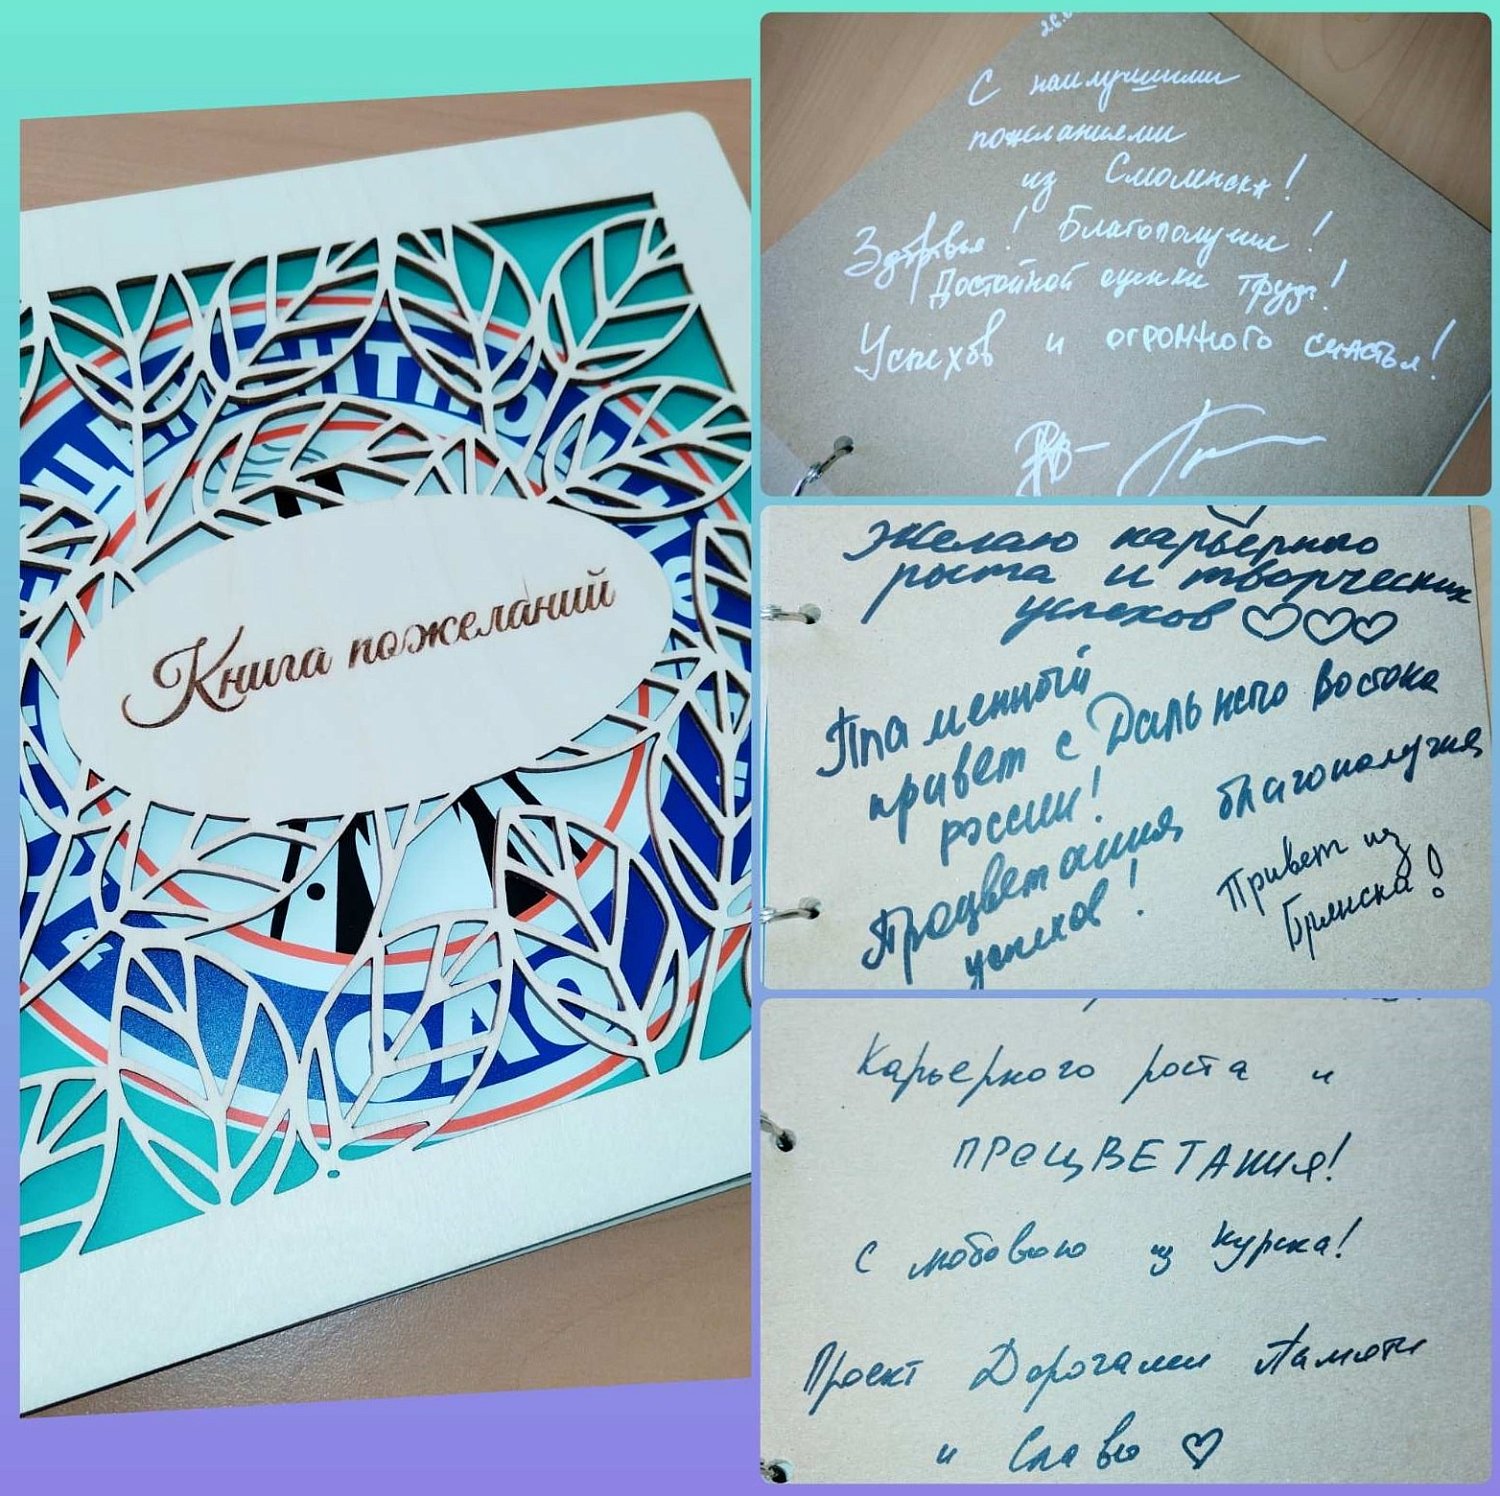 Книга пожеланий
ОАО
С наилучшими
пожеланиями
из Смоленска!
Здоровья! Благополучия!
Достойной оценки труда!
Успехов и огромного счастья!
Желаю карьерного
роста и творческих
успехов ♡♡♡
Пламенный
привет с Дальнего Востока
России!
Процветания, благополучия,
успехов!
Привет из
Брянска!
Карьерного роста и
ПРОЦВЕТАНИЯ!
С любовью из Курска!
Проект Дорогами Памяти
и Славы ♡